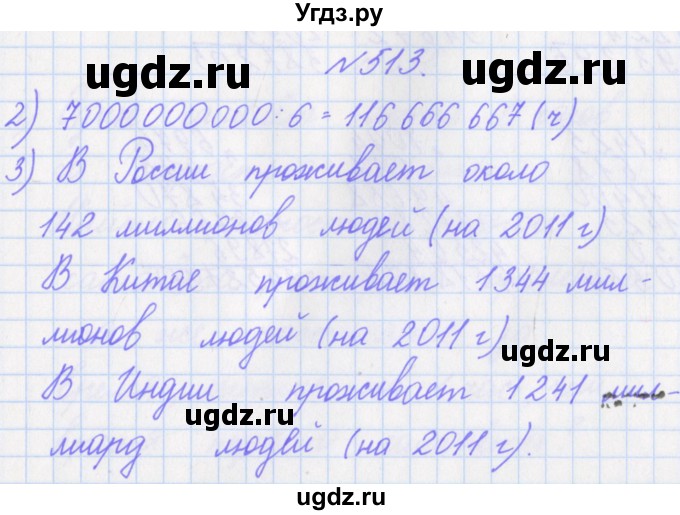 Угдз.ру
№513.
ugdz.ru ugdz.ru
2) 7000 000 000 : 6 = 116 666 667 (ч)
3) В России проживает около
142 миллионов людей (на 2011 г)
ugdz.ru
В Китае проживает 1344 мил-
лионов людей (на 2011 г)
ugdz.ru
В Индии проживает 1241 мил-
лиард людей (на 2011 г).
ugdz.ru ugdz.ru
ugdz.ru